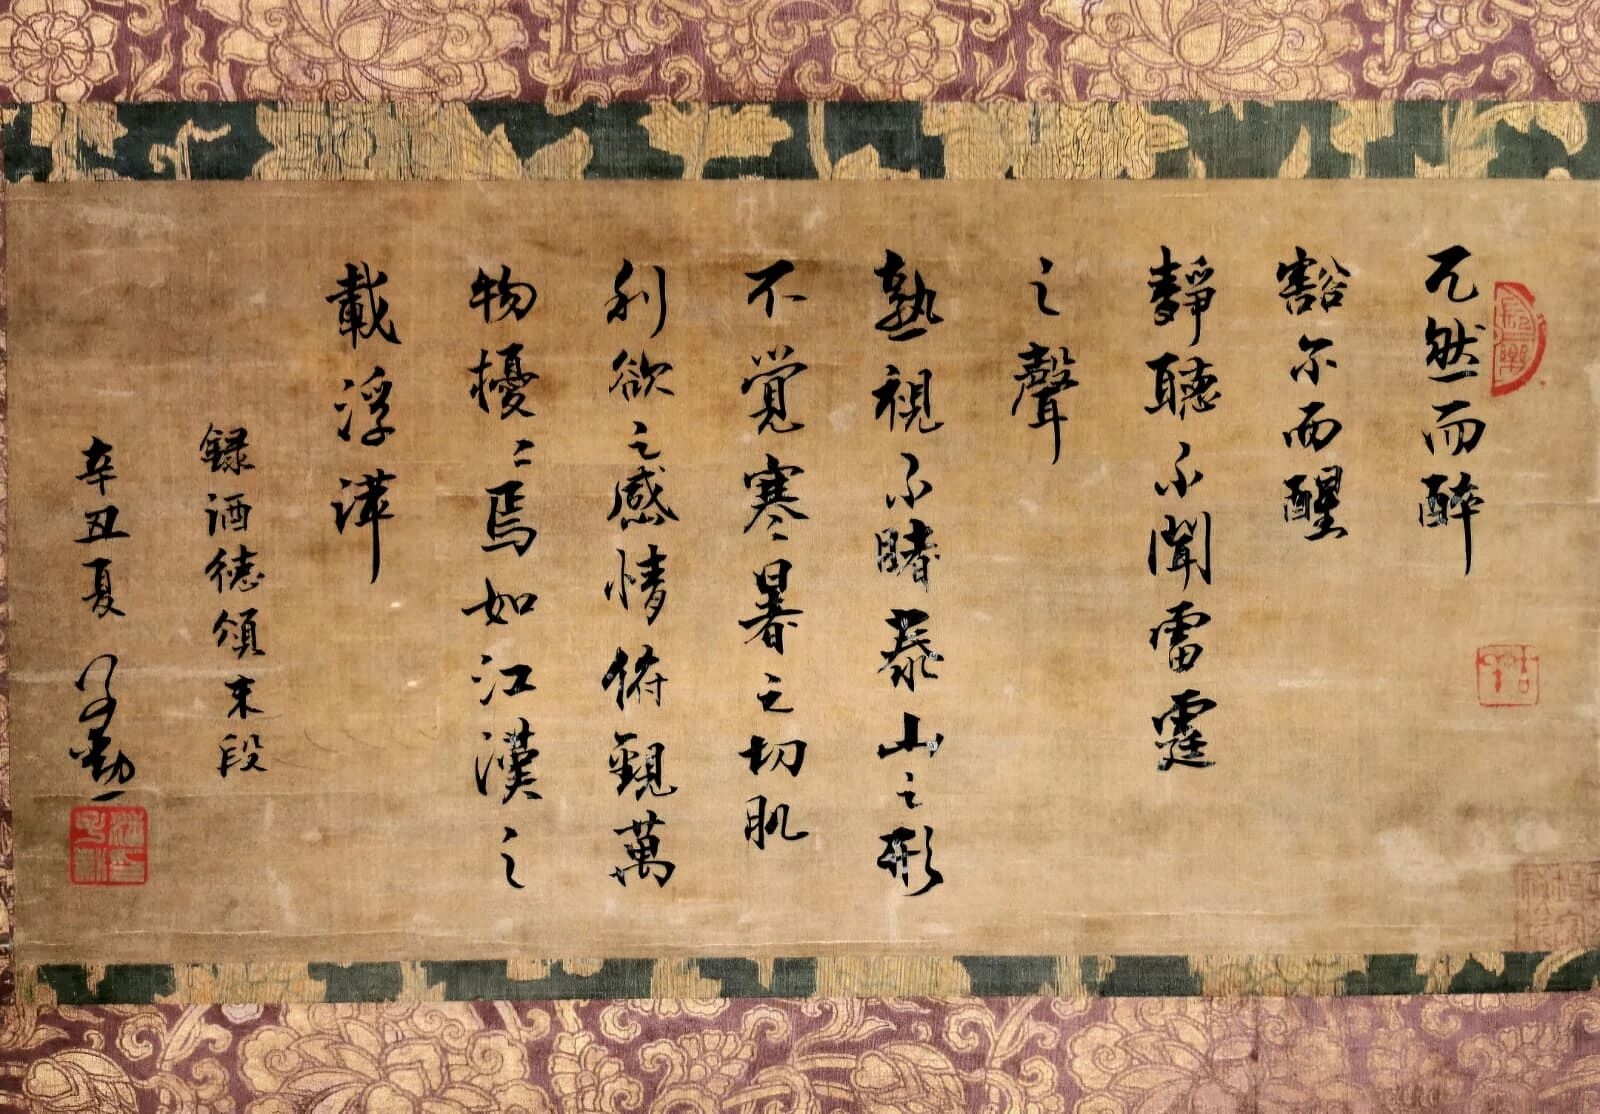 兀然而醉
豁尒而醒
靜聽不聞雷霆
之聲
熟視不睹泰山之形
不覚寒暑之切肌
利欲之感情俯觀萬
物擾〻焉如江漢之
載浮萍
録酒德頌末段
辛丑夏
長樂